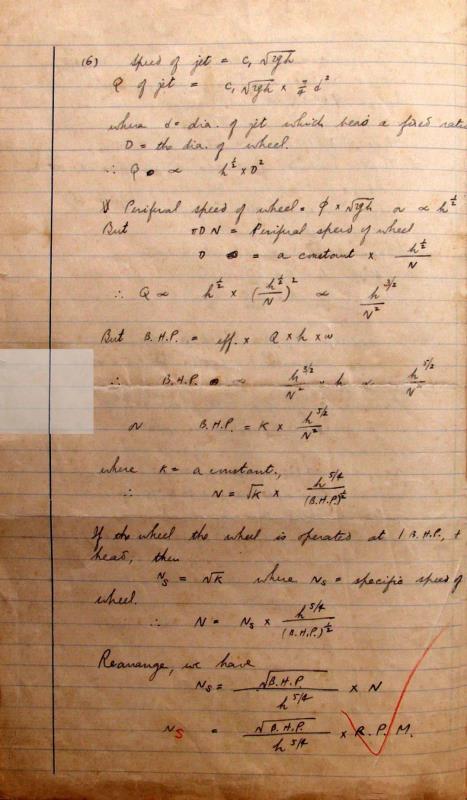 (6) Speed of jet = C₁ √2gh
Q of jet = C₁ √2gh × π/4 d²
where d = dia. of jet which bears a fixed ratio
D = the dia. of wheel.
∴ Q ∝ h^½ × D²
Periferal speed of wheel = φ × √2gh or ∝ h^½
But πDN = Periferal speed of wheel
D = a constant × h^½/N
∴ Q ∝ h^½ × (h^½/N)² ∝ h^3/2/N²
But B.H.P. = eff. × Q × h × w
∴ B.H.P. ∝ h^3/2/N² × h ∝ h^5/2/N²
or B.H.P. = K × h^5/2/N²
where K = a constant,
∴ N = √K × h^5/4/(B.H.P.)^½
If the wheel the wheel is operated at 1 B.H.P., +
head, then
N_S = √K where N_S = specific speed of
wheel.
∴ N = N_S × h^5/4/(B.H.P.)^½
Rearrange, we have
N_S = √B.H.P/h^5/4 × N
N_S = √B.H.P./h^5/4 × R.P.M.